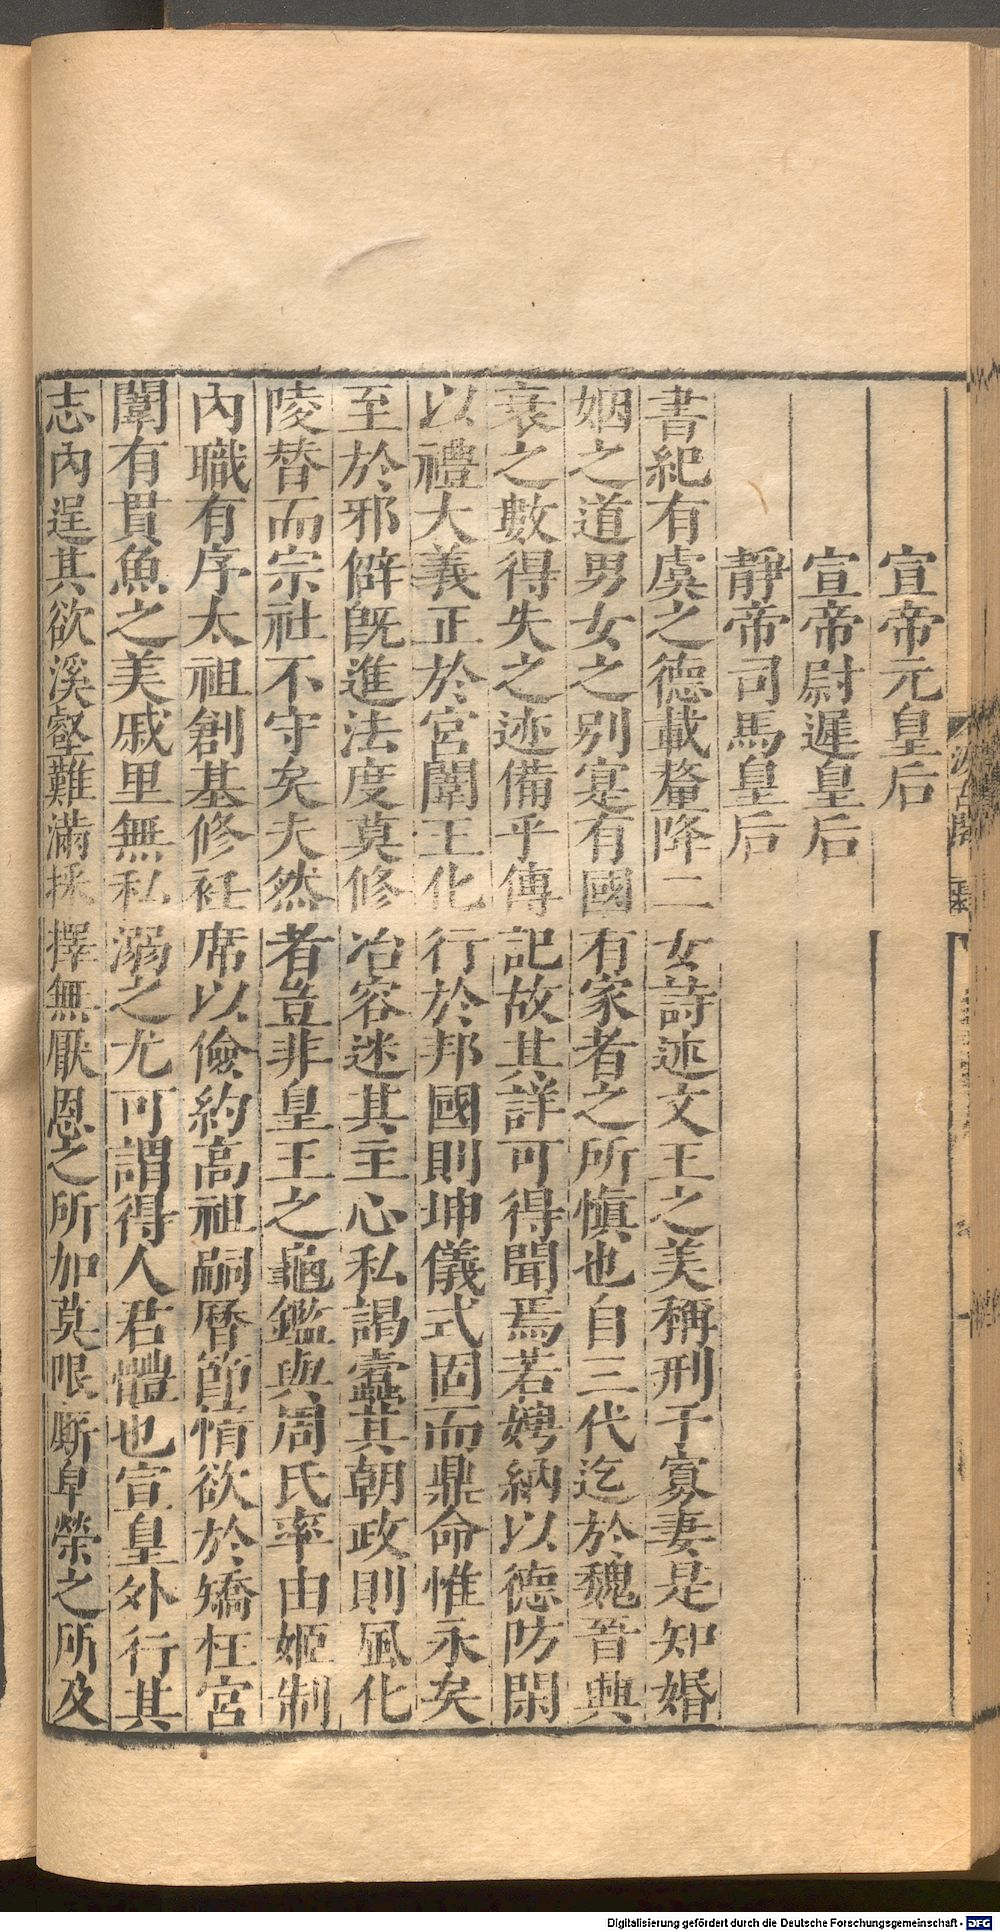 宣帝元皇后
宣帝尉遲皇后
靜帝司馬皇后
書紀有虞之德載釐降二女詩述文王之美稱刑于寡妻是知婚
姻之道男女之別寔有國有家者之所愼也自三代迄於魏晉興
衰之數得失之迹備乎傳記故其詳可得聞焉若娉納以德防閑
以禮大義正於宮闈王化行於邦國則坤儀式固而鼎命惟永矣
至於邪僻旣進法度莫修冶容迷其主心私謁蠧其朝政則風化
陵替而宗社不守矣夫然者豈非皇王之龜鑑與周氏率由姬制
內職有序太祖創基修衽席以儉約高祖嗣曆節情欲於矯枉宮
闈有貫魚之美戚里無私溺之尤可謂得人君體也宣皇外行其
志內逞其欲溪壑難滿採擇無厭恩之所加莫限厮皁榮之所及
Digitalisierung gefördert durch die Deutsche Forschungsgemeinschaft - DFG